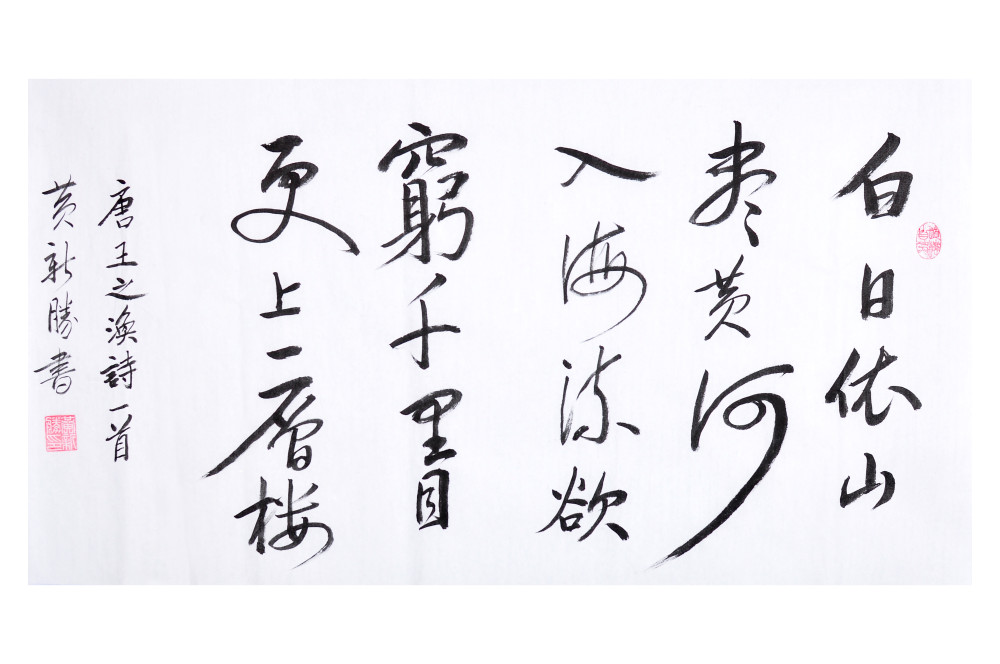 白日依山
尽黄河
入海流欲
窮千里目
更上一層楼
唐王之渙詩一首
黄新勝書